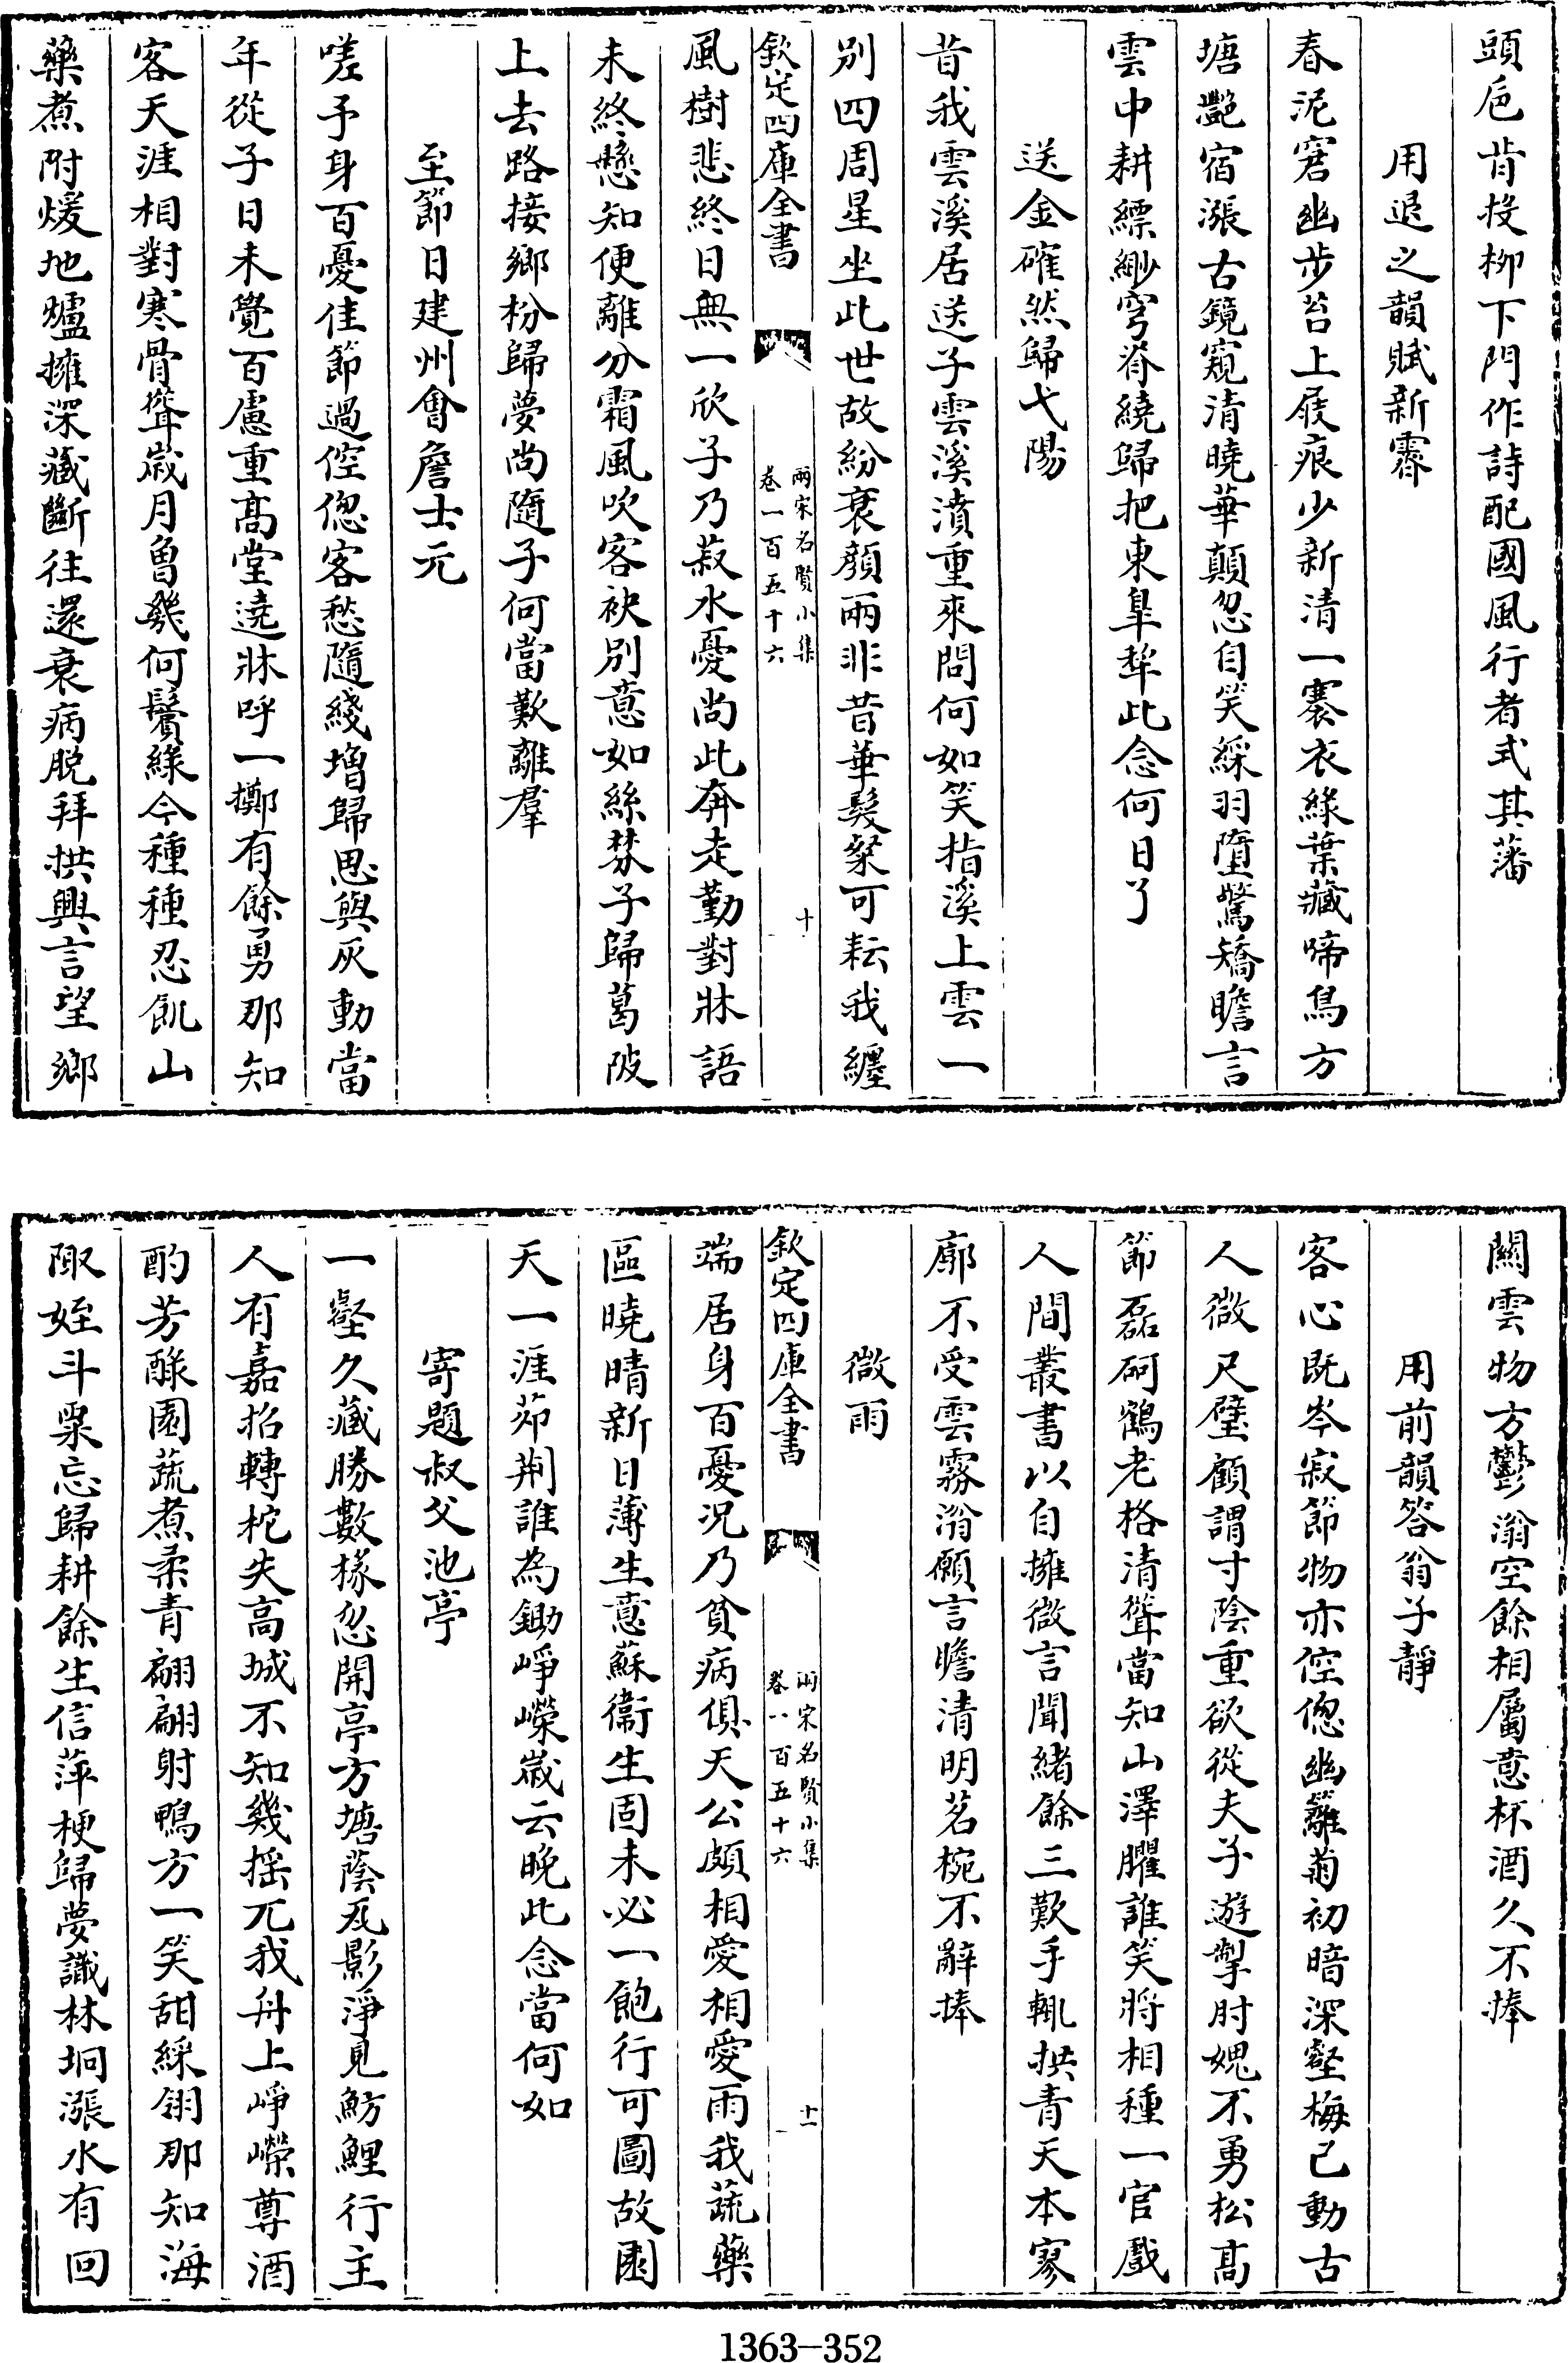 頭卮肯投柳下門作詩配國風行者式其藩
用退之韻賦新霽
春泥窘幽步苔上屐痕少新清一褰衣綠葉藏啼鳥方
塘灔宿漲古鏡窺清曉華顛忽自笑綵羽墮驚矯瞻言
雲中耕縹緲穹脊繞歸把東臯犂此念何日了
送金確然歸弋陽
昔我雲溪居送子雲溪濆重來問何如笑指溪上雲一
別四周星坐此世故紛衰顔兩非昔華髮粲可耘我纒
欽定四庫全書
兩宋名賢小集
卷一百五十六
十
風樹悲終日無一欣子乃菽水憂尚此奔走勤對牀語
未終戀知便離分霜風吹客袂別意如絲棼子歸葛陂
上去路接鄉枌歸夢尚隨子何當歎離羣
至節日建州會詹士元
嗟予身百憂佳節過倥偬客愁隨綫增歸思與灰動當
年從子日未覺百慮重高堂遶牀呼一擲有餘勇那知
客天涯相對寒骨聳歲月曾幾何鬢綠今種種忍飢山
藥煮附煖地爐擁深藏斷往還衰病脱拜拱興言望鄉
關雲物方鬱滃空餘相屬意杯酒久不捧
用前韻答翁子靜
客心既岑寂節物亦倥偬幽籬菊初暗深壑梅已動古
人微尺璧顧謂寸陰重欲從夫子遊掣肘媿不勇松高
節磊砢鶴老格清聳當知山澤臞誰笑將相種一官戲
人間叢書以自擁微言聞緒餘三歎手輒拱青天本寥
廓不受雲霧滃願言瞻清明茗椀不辭捧
微雨
欽定四庫全書
兩宋名賢小集
卷一百五十六
十一
端居身百憂況乃貧病俱天公頗相愛相愛雨我蔬藥
區曉晴新日薄生意蘇衞生固未必一飽行可圖故園
天一涯茆荆誰為鋤崢嶸歲云晚此念當何如
寄題叔父池亭
一壑久藏勝數椽忽開亭方塘蔭瓦影淨見魴鯉行主
人有嘉招轉柁失高城不知幾摇兀我舟上崢嶸尊酒
酌芳醁園蔬煮柔青翩翩射鴨方一笑甜綵翎那知海
陬姪斗粟忘歸耕餘生信萍梗歸夢識林坰漲水有回
1363-352